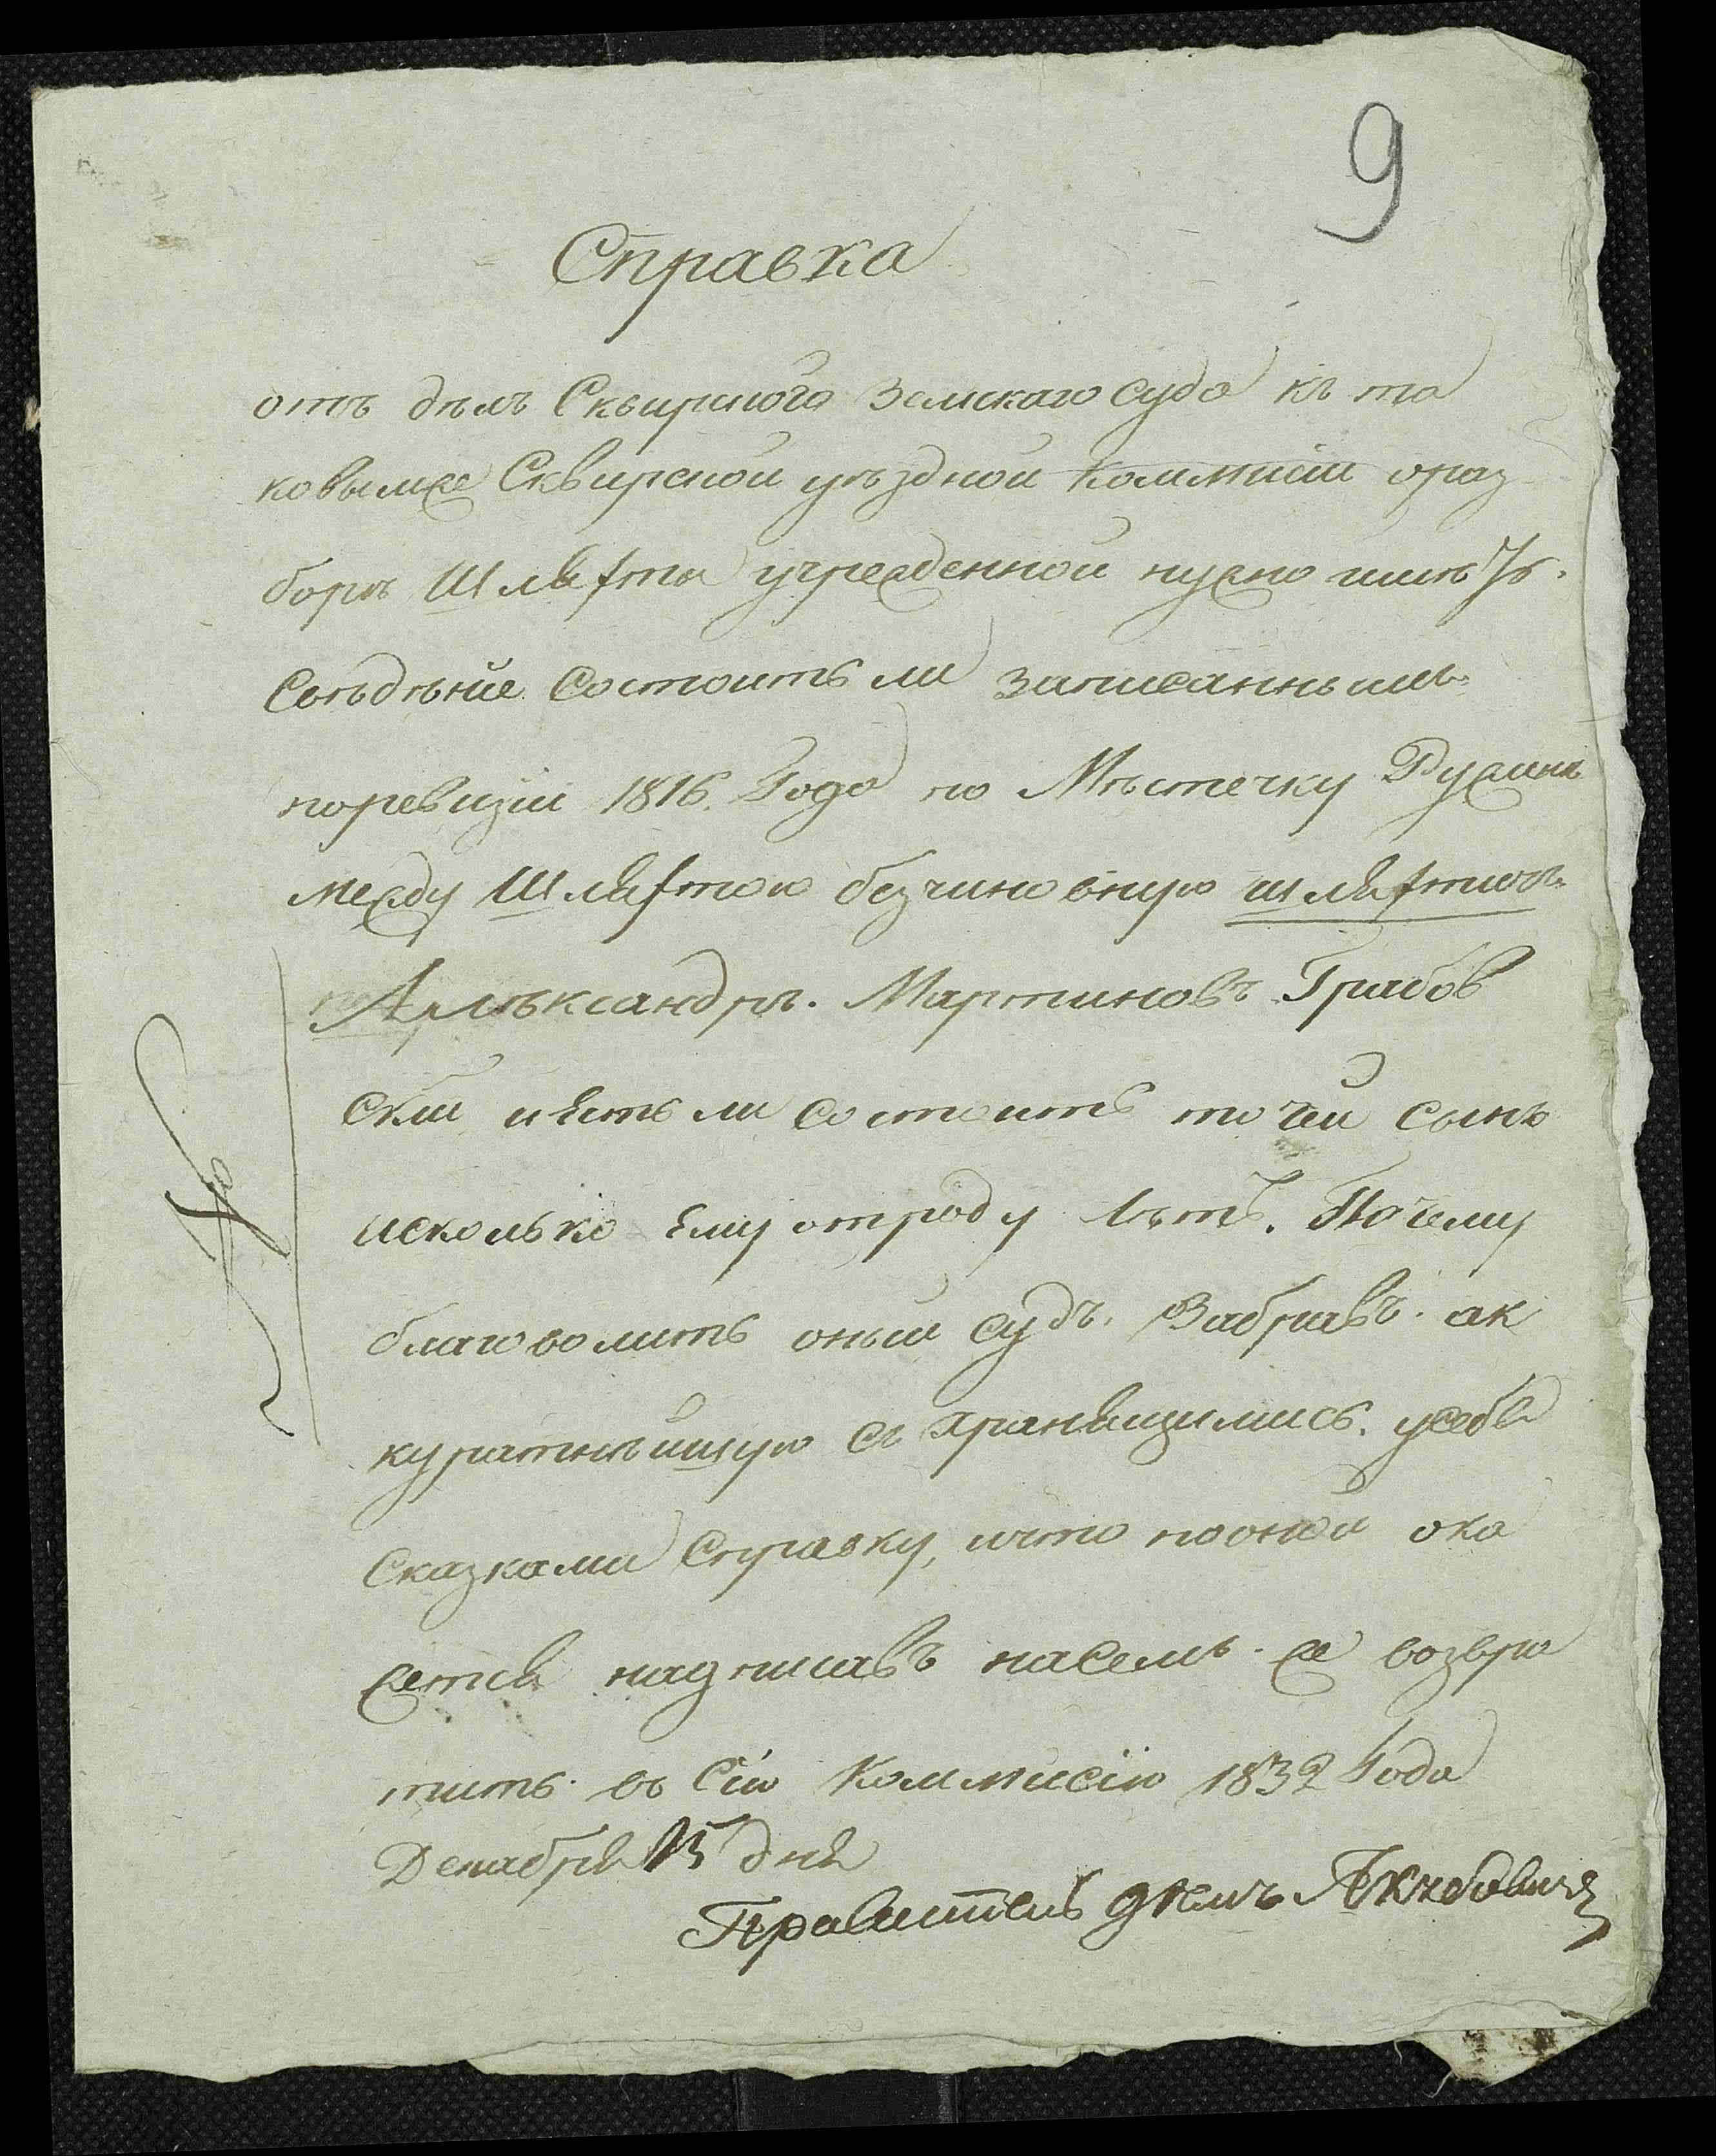 9
Справка
отъ дѣлъ Сквирного Земскаго суда къ та
ковымже Сквирской уѣздной Коммисіи ораз
борѣ Шляхты учрежденной нужно имѣть
Свѣдѣніе состоитъ ли записаннымъ
поревизіи 1816. Года по Мѣстечку Ружинѣ
между Шляхтою безчиновную шляхтичь
Алѣксандръ. Мартиновъ Грабов
скій иѣстьли состоитъ то чей сынъ
исколько ему отроду лѣтъ. Почему
благоволитъ оный судъ. Забравъ. ак
куратнѣйшую съ хранящимись. усебя
Сказками Справку, ичто пооной ока
жется надписавъ насемъ. же возвра
тить. въ Сію Коммисію 1832 Года
Декабря 15 дня
Правитель дѣлъ